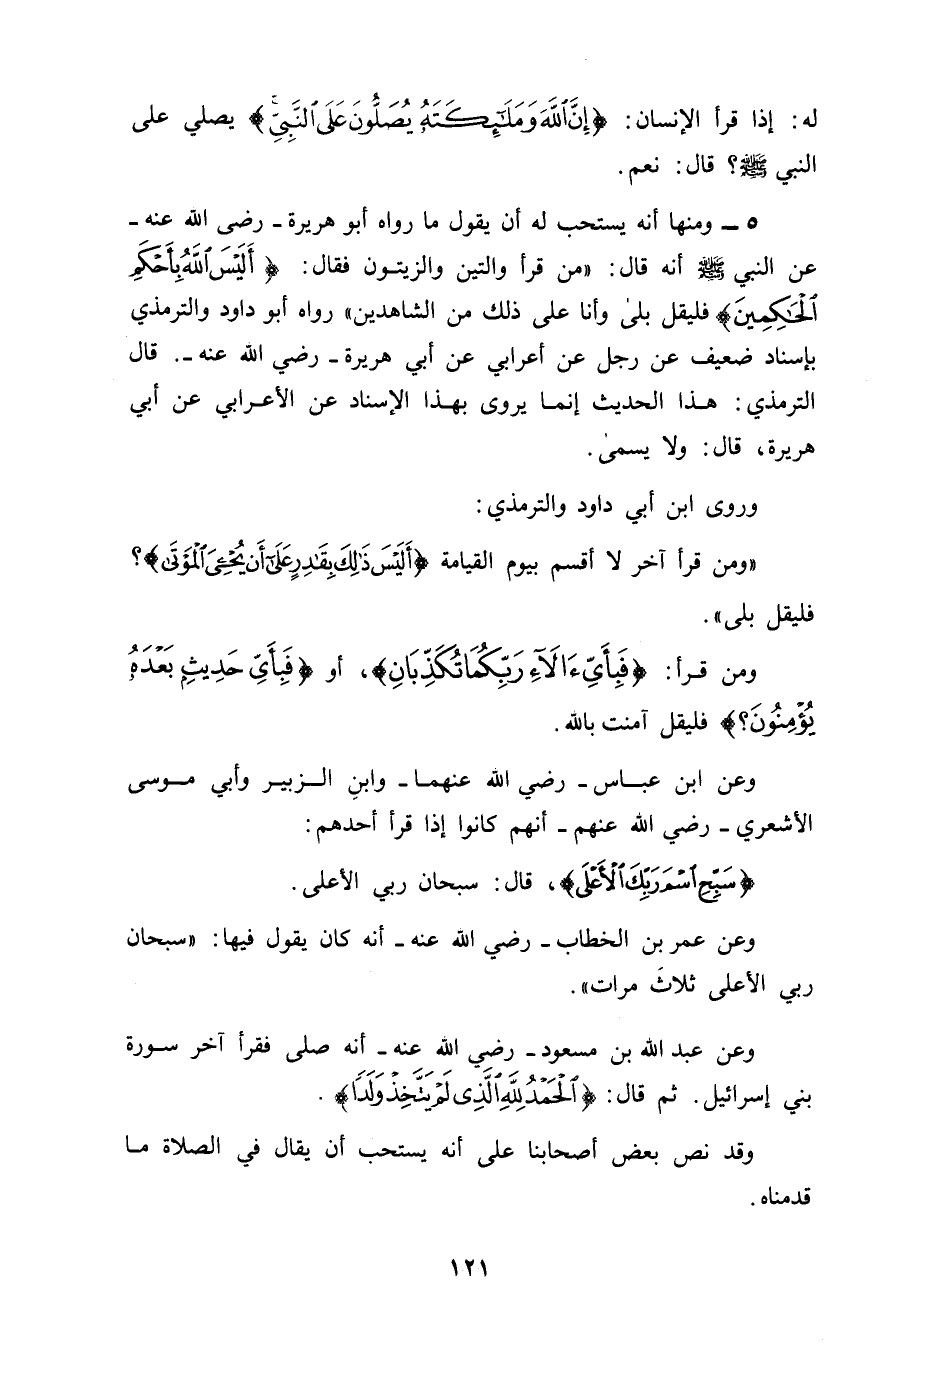 له: إذا قرأ الإنسان: ﴿إِنَّ ٱللَّهَ وَمَلَٰٓئِكَتَهُۥ يُصَلُّونَ عَلَى ٱلنَّبِيِّ﴾ يصلي على
النبي ﷺ؟ قال: نعم.
٥ ـ ومنها أنه يستحب له أن يقول ما رواه أبو هريرة ـ رضى الله عنه ـ
عن النبي ﷺ أنه قال: «من قرأ والتين والزيتون فقال: ﴿أَلَيْسَ ٱللَّهُ بِأَحْكَمِ
ٱلْحَٰكِمِينَ﴾ فليقل بلىٰ وأنا على ذلك من الشاهدين» رواه أبو داود والترمذي
بإسناد ضعيف عن رجل عن أعرابي عن أبي هريرة ـ رضي الله عنه ـ. قال
الترمذي: هذا الحديث إنما يروى بهذا الإسناد عن الأعرابي عن أبي
هريرة، قال: ولا يسمىٰ.
وروى ابن أبي داود والترمذي:
«ومن قرأ آخر لا أقسم بيوم القيامة ﴿أَلَيْسَ ذَٰلِكَ بِقَٰدِرٍ عَلَىٰٓ أَن يُحْۦِىَ ٱلْمَوْتَىٰ﴾؟
فليقل بلى».
ومن قرأ: ﴿فَبِأَيِّ ءَالَآءِ رَبِّكُمَا تُكَذِّبَانِ﴾، أو ﴿فَبِأَيِّ حَدِيثٍۭ بَعْدَهُۥ
يُؤْمِنُونَ؟﴾ فليقل آمنت بالله.
وعن ابن عباس ـ رضي الله عنهما ـ وابنِ الزبير وأبي موسى
الأشعري ـ رضي الله عنهم ـ أنهم كانوا إذا قرأ أحدهم:
﴿سَبِّحِ ٱسْمَ رَبِّكَ ٱلْأَعْلَى﴾، قال: سبحان ربي الأعلى.
وعن عمر بن الخطاب ـ رضي الله عنه ـ أنه كان يقول فيها: «سبحان
ربي الأعلى ثلاثَ مرات».
وعن عبد الله بن مسعود ـ رضي الله عنه ـ أنه صلى فقرأ آخر سورة
بني إسرائيل. ثم قال: ﴿ٱلْحَمْدُ لِلَّهِ ٱلَّذِى لَمْ يَتَّخِذْ وَلَدًا﴾.
وقد نص بعض أصحابنا على أنه يستحب أن يقال في الصلاة ما
قدمناه.
١٢١